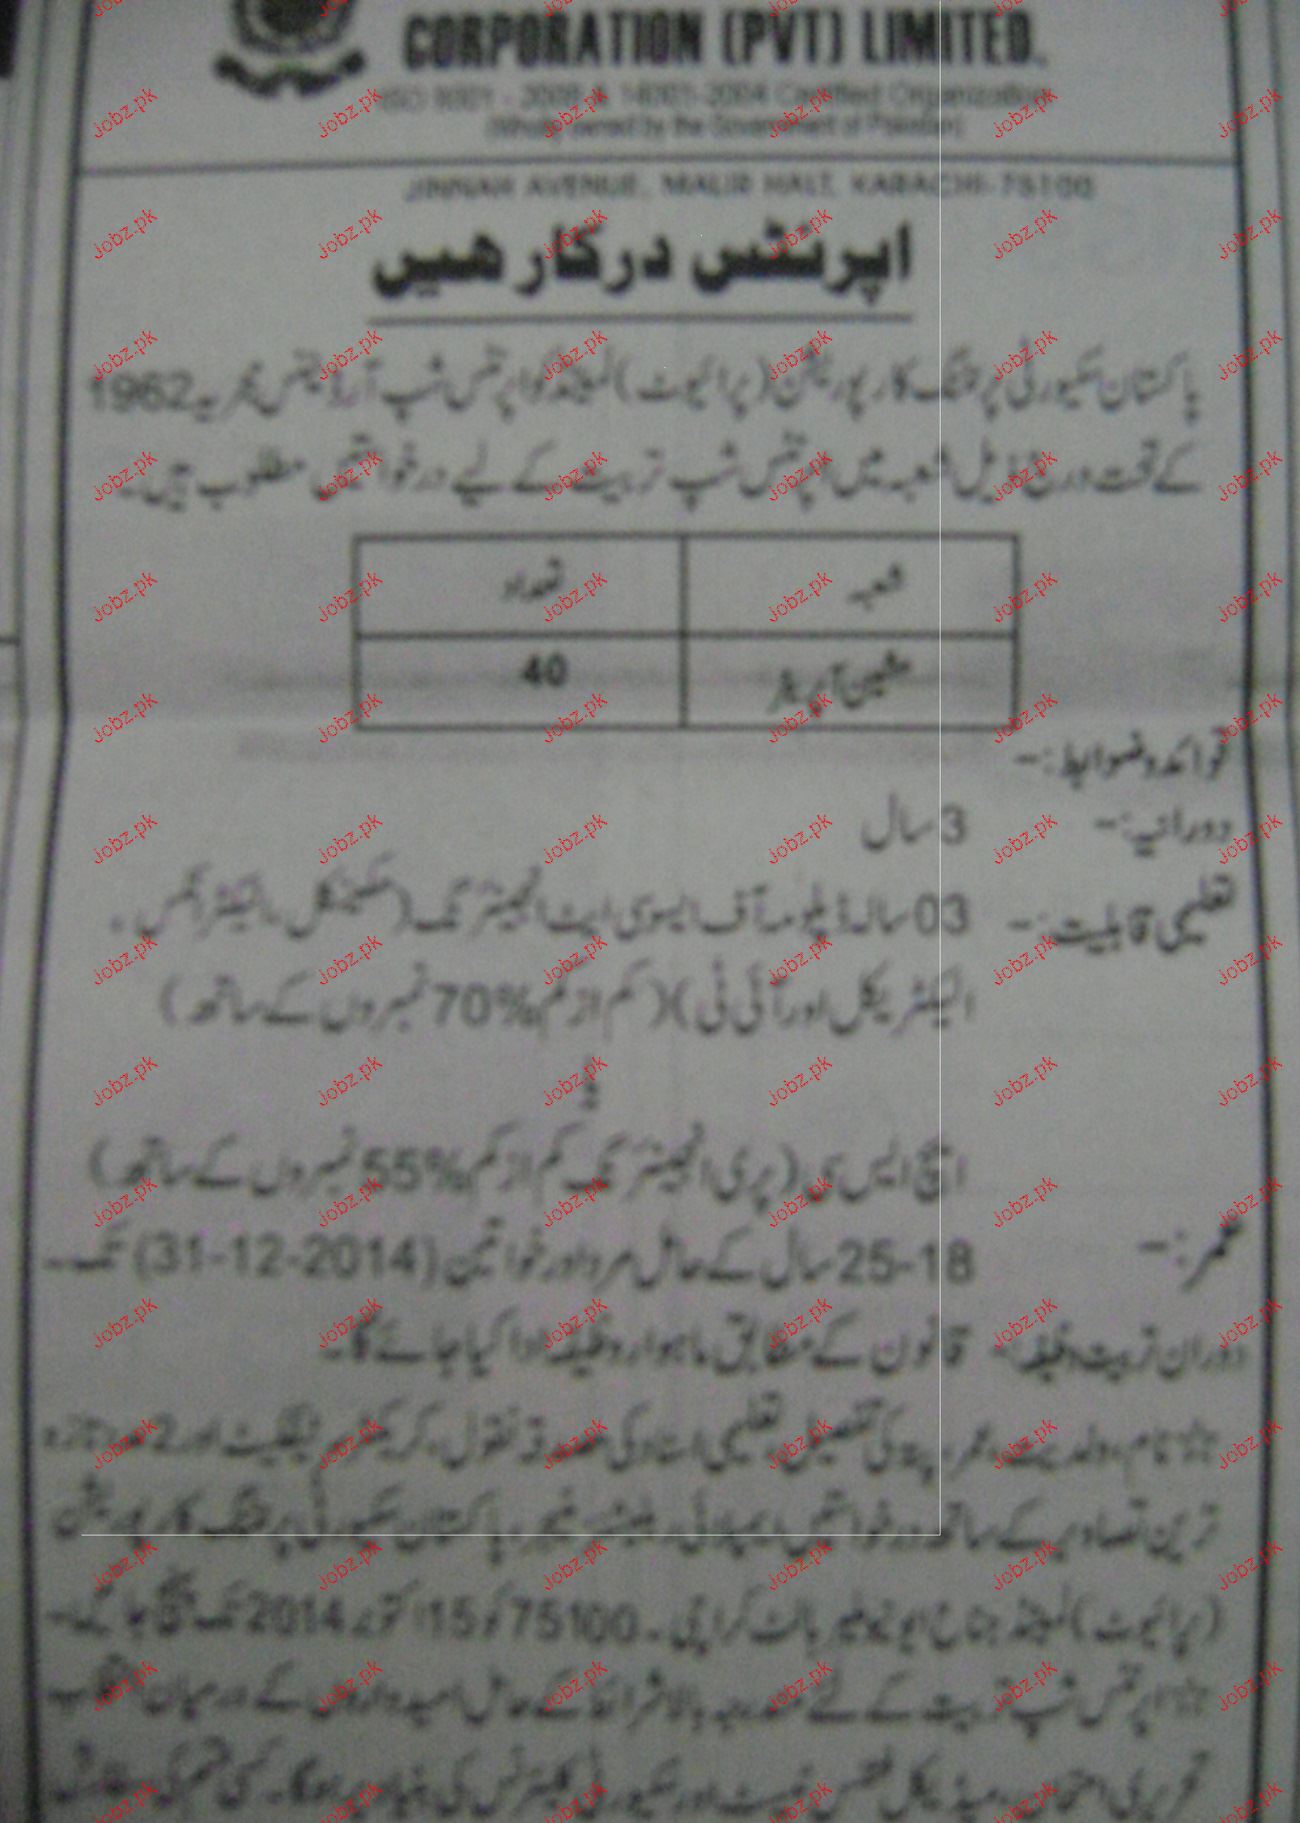 CORPORATION (PVT) LIMITED.
ISO 9001 - 2008 & 14001-2004 Certified Organization
(Wholly owned by the Government of Pakistan)
JINNAH AVENUE, MALIR HALT, KARACHI-75100
اپرنٹس درکار ھیں
پاکستان سکیورٹی پرنٹنگ کارپوریشن (پرائیوٹ) لمیٹڈ کو اپرنٹس شپ آرڈیننس مجریہ 1962
کے تحت درج ذیل شعبہ میں اپرنٹس شپ تربیت کے لیے درخواستیں مطلوب ہیں۔
شعبہ تعداد
مشین آپریٹر 40
قوائد و ضوابط:-
دورانیہ:- 3 سال
تعلیمی قابلیت:- 03 سالہ ڈپلومہ آف ایسوسی ایٹ انجینئرنگ (مکینیکل، الیکٹرانکس،
الیکٹریکل اور آئی ٹی) (کم از کم 70% نمبروں کے ساتھ)
یا
ایچ ایس سی (پری انجینئرنگ کم از کم 55% نمبروں کے ساتھ)
عمر:- 18-25 سال کے حامل مرد اور خواتین (31-12-2014) تک۔
دوران تربیت وظیفہ:- قانون کے مطابق ماہوار وظیفہ ادا کیا جائے گا۔
☆ نام، ولدیت، عمر، پتہ کی تفصیل، تعلیمی اسناد کی مصدقہ نقول، کریکٹر سرٹیفکیٹ اور 2 عدد تازہ
ترین تصاویر کے ساتھ درخواستیں پاکستان سکیورٹی پرنٹنگ کارپوریشن
(پرائیوٹ) لمیٹڈ جناح ایونیو ملیر ہالٹ کراچی۔ 75100 کو 15 اکتوبر 2014 تک پہنچ جائے۔
☆ اپرنٹس شپ تربیت کے لئے مندرجہ بالا شرائط کے حامل امیدواروں کے درمیان انتخاب
تحریری امتحان، میڈیکل فٹنس اور سکیورٹی کلیئرنس کی بنیاد پر ہوگا۔ کسی قسم کی
Jobz.pk